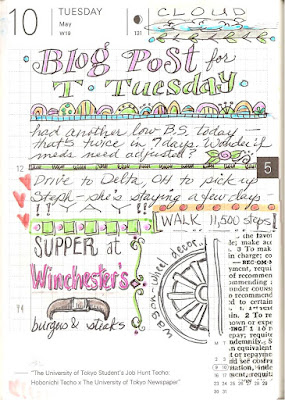 10 TUESDAY
May
W19
131
CLOUD
Blog Post for
T Tuesday
had another low B.S. today
that's twice in 7 days. Wonder if
meds need adjusted?
12
5
Drive to Delta, OH to pick up
Steph - she's staying a few days
!! YAY !!
WALK 11,500 steps
SUPPER at
Winchester's
burgers & steaks
wagon wheel decor
the favore
make; make ac
in charge; co
RECOM
payment, requi
recommending
under consi
recommend
to certain
1. To re
known or expe
ING
repay
equivalent
or repayme
red see confra
"The University of Tokyo Student's Job Hunt Techo:
Hobonichi Techo x The University of Tokyo Newspaper"